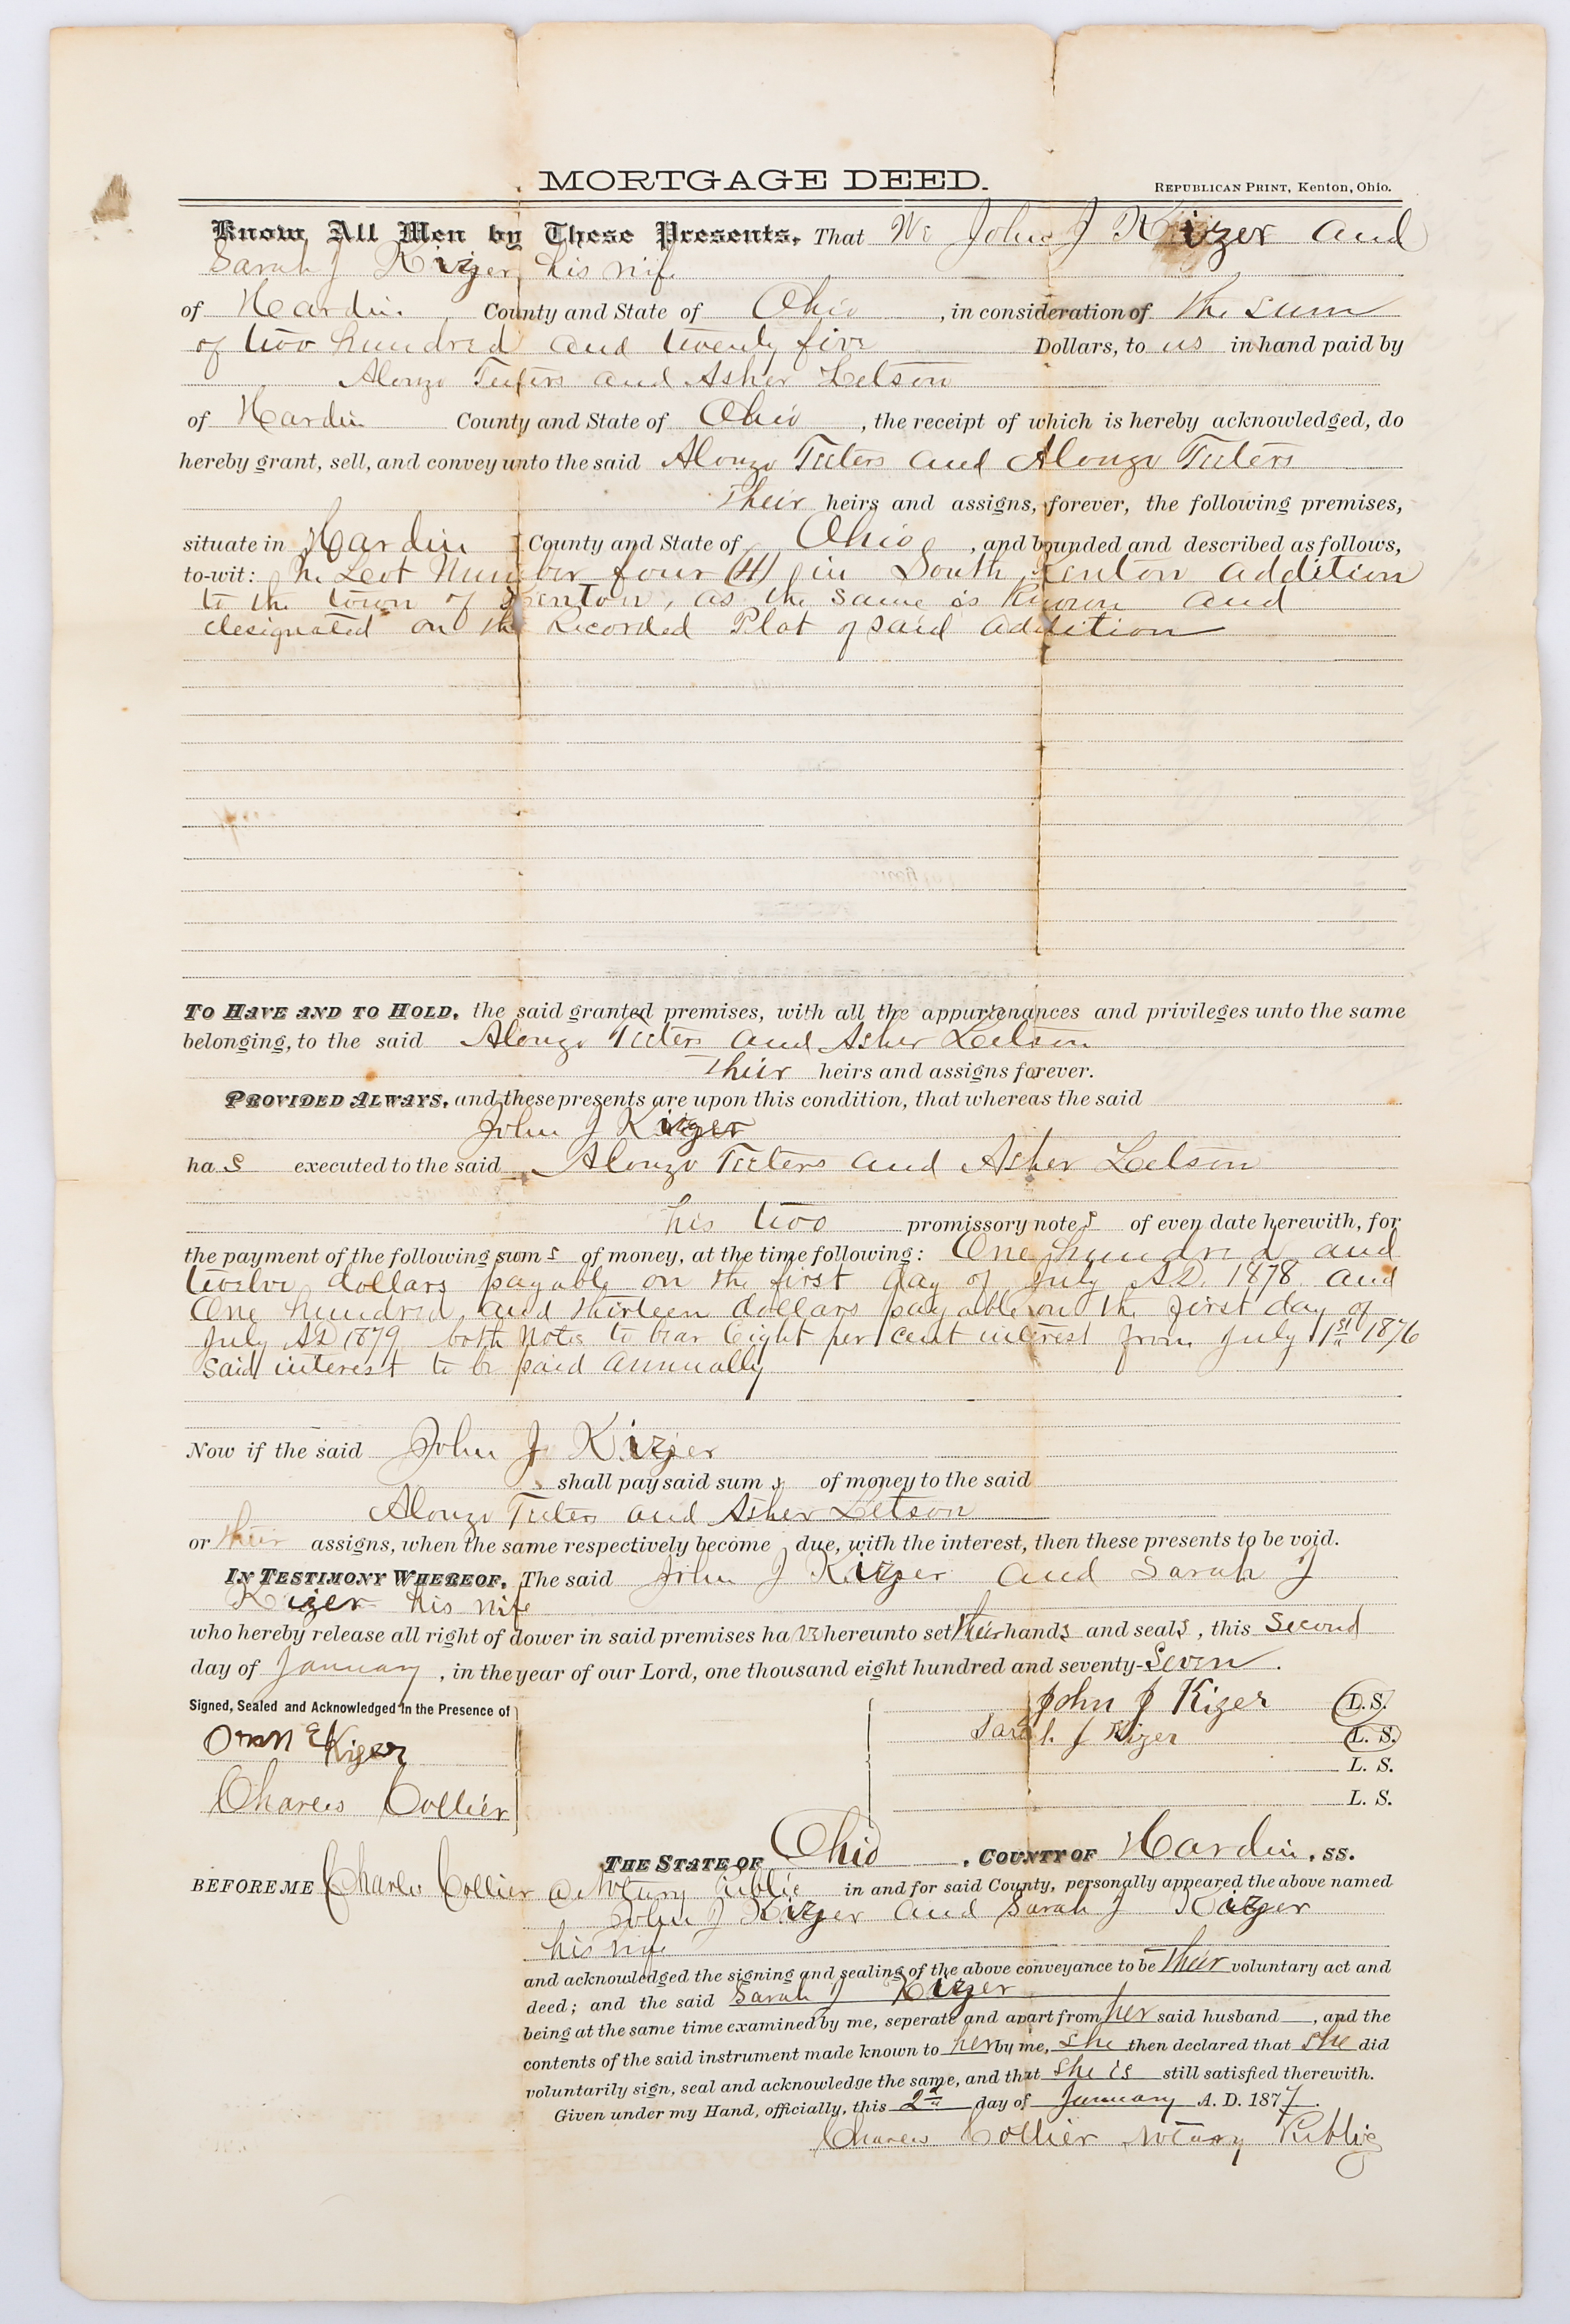 MORTGAGE DEED.
REPUBLICAN PRINT, Kenton, Ohio.
Know All Men by These Presents, That We John J Kizer and
Sarah J Kizer his wife
of Hardin County and State of Ohio, in consideration of the sum
of two hundred and twenty five Dollars, to us in hand paid by
Alonzo Teeters and Asher Letson
of Hardin County and State of Ohio, the receipt of which is hereby acknowledged, do
hereby grant, sell, and convey unto the said Alonzo Teeters and Alonzo Teeters
Their heirs and assigns, forever, the following premises,
situate in Hardin County and State of Ohio, and bounded and described as follows,
to-wit: In Lot Number four (4) in South Kenton addition
to the town of Kenton, as the same is known and
designated on the Recorded Plat of said addition
TO HAVE AND TO HOLD, the said granted premises, with all the appurtenances and privileges unto the same
belonging, to the said Alonzo Teeters and Asher Letson
Their heirs and assigns forever.
PROVIDED ALWAYS, and these presents are upon this condition, that whereas the said
John J Kizer
has executed to the said Alonzo Teeters and Asher Letson
his two promissory notes of even date herewith, for
the payment of the following sums of money, at the time following: One hundred and
twelve dollars payable on the first day of July A.D. 1878 and
One hundred and thirteen dollars payable on the first day of
July AD 1879 both notes to bear Eight per cent interest from July 1st 1876
Said interest to be paid annually
Now if the said John J Kizer
shall pay said sums of money to the said
Alonzo Teeters and Asher Letson
or their assigns, when the same respectively become due, with the interest, then these presents to be void.
IN TESTIMONY WHEREOF, The said John J Kizer and Sarah J
Kizer his wife
who hereby release all right of dower in said premises have hereunto set their hands and seals, this Second
day of January, in the year of our Lord, one thousand eight hundred and seventy-Seven.
Signed, Sealed and Acknowledged in the Presence of
John J Kizer L. S.
Sarah J Kizer L. S.
Kizer L. S.
Charles Collier L. S.
THE STATE OF Ohio, COUNTY OF Hardin, SS.
BEFORE ME Charles Collier a Notary Public in and for said County, personally appeared the above named
John J Kizer and Sarah J Kizer
his wife
and acknowledged the signing and sealing of the above conveyance to be Their voluntary act and
deed; and the said Sarah J Kizer
being at the same time examined by me, seperate and apart from her said husband, and the
contents of the said instrument made known to her by me, She then declared that she did
voluntarily sign, seal and acknowledge the same, and that she is still satisfied therewith.
Given under my Hand, officially, this 2nd day of January A. D. 1877.
Charles Collier Notary Public